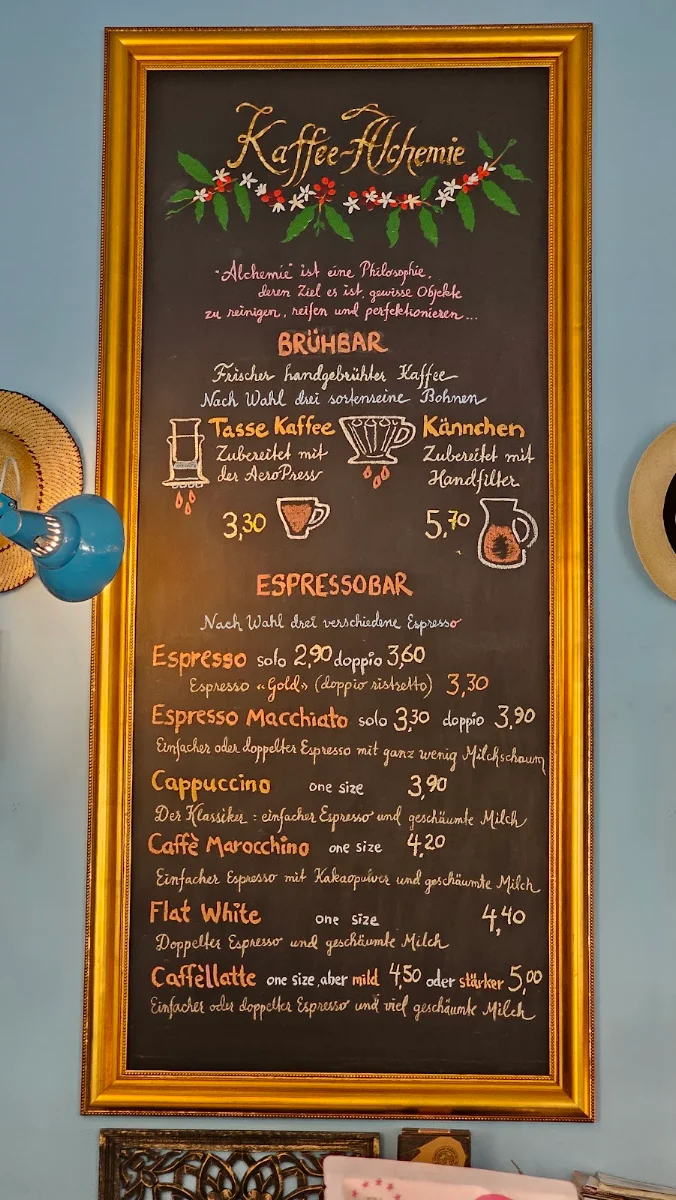 Kaffee-Alchemie
"Alchemie" ist eine Philosophie,
deren Ziel es ist, gewisse Objekte
zu reinigen, reifen und perfektionieren...
BRÜHBAR
Frischer handgebrühter Kaffee
Nach Wahl drei sortenreine Bohnen
Tasse Kaffee
Zubereitet mit
der AeroPress
3,30
Kännchen
Zubereitet mit
Handfilter
5,70
ESPRESSOBAR
Nach Wahl drei verschiedene Espresso
Espresso solo 2,90 doppio 3,60
Espresso «Gold» (doppio ristretto) 3,30
Espresso Macchiato solo 3,30 doppio 3,90
Einfacher oder doppelter Espresso mit ganz wenig Milchschaum
Cappuccino one size 3,90
Der Klassiker: einfacher Espresso und geschäumte Milch
Caffè Marocchino one size 4,20
Einfacher Espresso mit Kakaopulver und geschäumte Milch
Flat White one size 4,40
Doppelter Espresso und geschäumte Milch
Caffèllatte one size, aber mild 4,50 oder stärker 5,00
Einfacher oder doppelter Espresso und viel geschäumte Milch